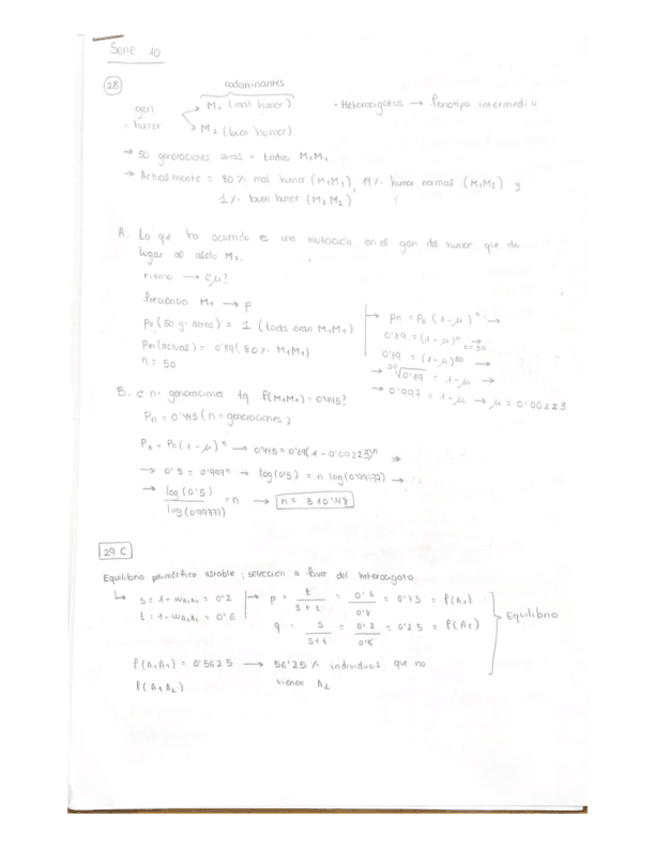 Serie 10
28
codominantes
gen humor
M1 (mal humor)
M2 (buen humor)
· Heterocigotos → fenotipo intermedio
→ 50 generaciones atras = todos M1M1
→ Actualmente = 80% mal humor (M1M1), 19% humor normal (M1M2) y
1% buen humor (M2M2)
A. Lo que ha ocurrido es una mutación en el gen del humor que da
lugar al alelo M2.
ritmo → c μ?
frecuencia M1 → p
p0 (50 g. atras) = 1 (todos eran M1M1)
pn (actual) = 0'89 (80% M1M1)
n = 50
→ pn = p0 (1-μ)^n →
0'89 = (1-μ)^n →
n=50
0'89 = (1-μ)^50 →
→ ⁵⁰√0'89 = 1-μ →
→ 0'997 = 1-μ → μ = 0'00223
B. c nº generaciones tq f(M1M1) = 0'445?
Pn = 0'445 (n = generaciones)
Pn = P0 (1-μ)^n → 0'445 = 0'89 (1-0'00223)^n →
→ 0'5 = 0'997^n → log(0'5) = n log(0'99777) →
→ log(0'5) / log(0'99777) = n → n = 310'48
29 C
Equilibrio polimórfico estable; selección a favor del heterocigoto
s = 1 - wA1A1 = 0'2
t = 1 - wA2A2 = 0'6
→ p = t / s+t = 0'6 / 0'8 = 0'75 = f(A1)
q = s / s+t = 0'2 / 0'8 = 0'25 = f(A2)
Equilibrio
f(A1A1) = 0'5625 → 56'25% individuos que no
tienen A2
f(A1A2)